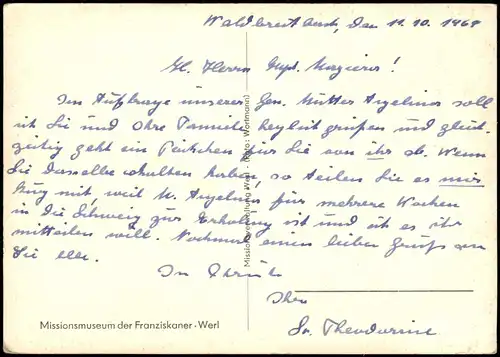 Waldbreitbach, den 11.10.1968
Herrn
Im Auftrage unserer Gen. Mutter Angelina soll
ich Sie und Ihre Familie herzlich grüßen und gleich-
zeitig geht ein Päckchen für Sie von ihr ab. Wenn
Sie dasselbe erhalten haben, so teilen Sie es mir
bitte mit, weil M. Angelina für mehrere Wochen
in die Schweiz zur Erholung ist und ich es ihr
mitteilen will. Nochmals einen lieben Gruß an
Sie alle.
In Christo
Ihre
Sr. Theodorine
Missionsverwaltung Werl - (Foto: Wortmann)
Missionsmuseum der Franziskaner · Werl